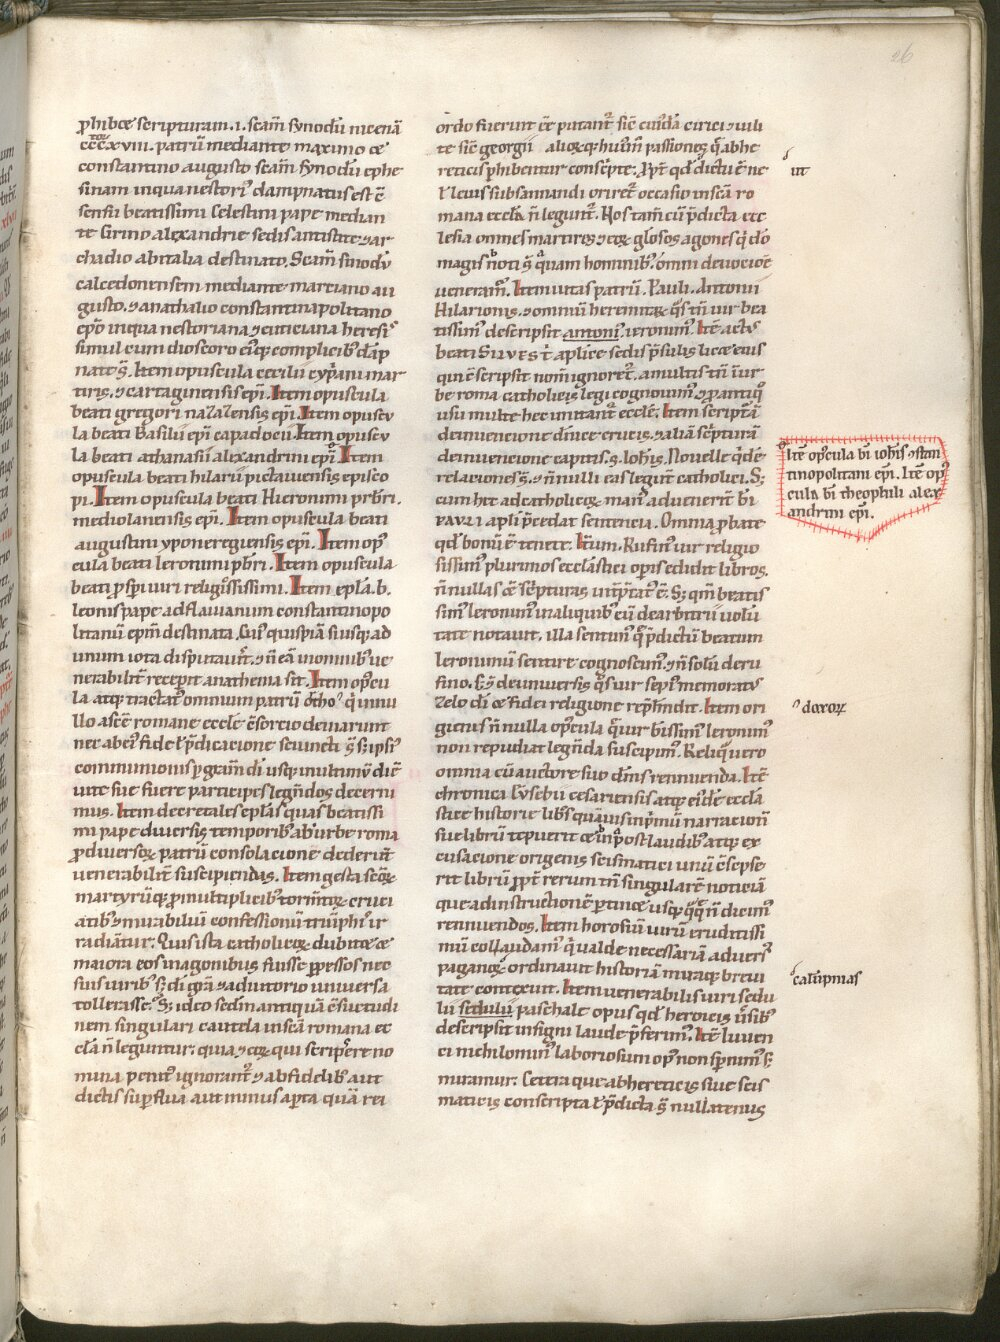 26
ꝓhibꝫ scripturam .i. scam̄ synodū nicenā
cccxviii. patrū mediante maximo cē
constantino augusto scam̄ synodū ephe
sinam in qua nestori᷒ dampnatus est c̄
sensu beatissimi celestini pape median
te cirino alexandrie sedis antistite ⁊ ar
chadio ab italia destinato. Scam̄ sinodū
calcedonensem mediante martiano au
gusto. ⁊ anatholio constantinapolitano
ep̄o in qua nestoriana ⁊ euticiana heresi᷒
simul cum dioscoro ei᷒qꝫ complicib᷒ dāp
nate s̄. Item opuscula cecilii cyp̄ani mar
tiris. ⁊ cartaginensis ep̄i. Item opuscula
beati gregori nazazensis ep̄i. Item opuscu
la beati Basilii ep̄i capadocii. Item opuscu
la beati athanasii alexandrini ep̄i. Item
opuscula beati hilarii pictauensis episco
pi. Item opuscula beati Hieronimi prb̄ri.
mediolanensis ep̄i. Item opuscula beati
augustini yponeregiensis ep̄i. Item op᷒
cula beati ieronimi pb̄ri. Item opuscula
beati ꝓspi uiri religi᷒sissimi. Item epl̄a .b.
leonis pape ad flauianum constantinopo
litanū ep̄m destinata. cui᷒ quispiā si usqꝫ ad
unum iota disputauit̄. ⁊ n̄ eā in omnib᷒ ue
nerabilit̄ recepit anathema sit. Item op᷒cu
la atqꝫ tractat᷒ omnium patrū ōrtho᷒ qͥ in nu
llo a sc̄e romane eccle c̄sortio deuiarunt
nec ab ei᷒ fide ł p̄dicacione seiuncti s̄ s; ip̄i᷒
communionis ꝑ gram̄ di usqꝫ in ultimū diē
uite sue fuere participes legn̄dos decerni
mus. Item decretales epl̄as quas beatissi
mi pape diuersis temporib᷒ ab urbe roma
ꝓ diuersoꝝ patrū consolacione dederūt
uenerabilit̄ suscipiendas. Item gesta sc̄oꝝ
martyrū qꝫ ꝓ multiplicib᷒ torm̄toꝝ cruci
atib᷒ ⁊ mirabiliū confessionū triūphi᷒ ir
radiāt̄ur. Quis ista catholicoꝝ dubitet cē
maiora eos in agonibus fuisse ꝑpessos nec
suis uirib᷒ s; di grā ⁊ adiutorio uniuersa
tollerasse. S; ideo sedm antiquā c̄suetudi
nem singulari cautela in sc̄a romana ec
cl̄a n̄ leguntur. quia ⁊ eoꝝ qui scripsere no
mina penit᷒ ignorant̄ ⁊ ab fidelib᷒ aut
dictis suꝑflua aut minus aꝑta quā rei
ordo fuerunt cē putant̄ sic̄ cui᷒dā cirici ⁊ iuli
te sic̄ georgii alioꝝqꝫ hui᷒m̄ passiones q̄ ab he
reticis ꝓhibentur conscp̄te. Ꝓpt̄ qd̄ dictū ē ne
ł leuis subsannandi oriret̄ occasio in sc̄a ro
mana eccla n̄ legunt̄. Nos tam̄ cū p̄dicta ecc
lesia omnes martires ⁊ eoꝝ gl̄osos agones qͥ dō
magis noti s̄ qͣm hominib᷒. omni deuocioē
ueneram᷒. Item uitas patrū. Pauli. Antonii
Hilarionis. ⁊ omniū heremitaꝝ qͣs tn̄ uir bea
tissim᷒ descripsit antoni᷒ ieronim᷒. Itē act᷒
beati Siluest̄ aplice sedis p̄sulis licet eius
qui c̄scripsit nom̄ ignoret̄. a multis tn̄ ī ur
be roma catholicis legi cognouim᷒. ⁊ ꝓ antiq᷒
usu multe hec imitant̄ eccle. Item scriptā
de inuencione d̄nice crucis. ⁊ aliā scp̄turā
de inuencione capitis .s. ioh̄is. Nouelle qͥdē
relaciones s̄. ⁊ n̄nulli eas legūt catholici. S;
cum hec ad catholicoꝝ man᷒ aduenerit bi
pauli apl̄i p̄cedat sentencia. Omnia ꝓbate
qd̄ bonū ē tenete. Itum. Rufin᷒ uir religio
sissim᷒ plurimos ecclastici opis edidit libros.
n̄nullas cē scp̄turas intp̄tat᷒ ē. S; qm̄ beatis
sim᷒ ieronim᷒ in aliquib᷒ eū de arbitrii uolū
tate notauit. illa sentim᷒ q̄ p̄dictū beatum
ieronimū sentire cognoscim᷒. ⁊ n̄ solū de ru
fino. s; ⁊ de uniuersis qͦs uir sepi᷒ memorat᷒
zelo di ⁊ fidei religione rep̄hndit. Item ori
gicius n̄nulla op᷒cula q̄ uir bissim᷒ ieronim᷒
non repudiat legn̄da suscipim᷒. Reliq᷒ uero
omnia cū auctore suo dim᷒s rennuenda. Itē
chronica eusebii cesariensis atqꝫ ei᷒dē eccla
stice historie lib᷒s quāuis in p̄mū narracioni
sue librū tepuerit ⁊ ī post laudib᷒ atqꝫ ex
cusacione origenis scismatici unū c̄scripse
rit librū ꝓpt̄ rerum tn̄ singulare noticiā
que ad instructionē ꝑtinet usqꝫ q̄qͣ n̄ dicim᷒
rennuendos. Item horosium uirū eruditissi
mū collaudam᷒ qͥ ualde necessariā aduers᷒
paganoꝝ ordinauit historiā miraqꝫ breui
tate contexuit. Item uenerabilis uiri sedu
lii sedulii paschale opus qd̄ heroicis ūsib᷒
descripsit insigni laude p̄ferim᷒. Itē iuuen
ci nichilomin᷒ laboriosum op᷒ non sp̄nim᷒ s;
miramur. Cetera que ab hereticis siue scis
maticis conscripta ł p̄dicta s̄ nullatenus
ut
Itē op᷒cula bi ioh̄is ᷒stan
tinopolitani ep̄i. Itē op᷒
cula bi theophili alex
andrini ep̄i.
᷒doxoꝝ
calūpnias